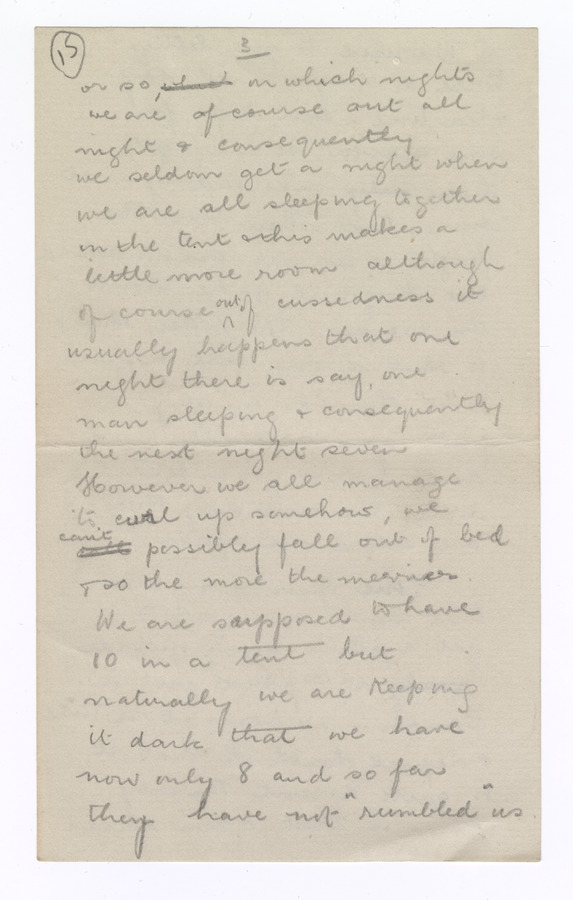 15
3
or so, on which nights
we are of course out all
night & consequently
we seldom get a night when
we are all sleeping together
in the tent & this makes a
little more room although
of course out of cussedness it
usually happens that one
night there is say, one
man sleeping & consequently
the next night seven
However we all manage
to curl up somehow, we
can't possibly fall out of bed
& so the more the merrier.
We are supposed to have
10 in a tent but
naturally we are keeping
it dark that we have
now only 8 and so far
they have not "rumbled" us